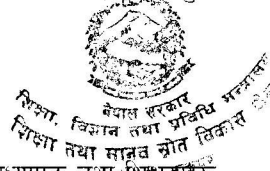 नेपाल सरकार
शिक्षा, विज्ञान तथा प्रविधि मन्त्रालय
शिक्षा तथा मानव स्रोत विकास